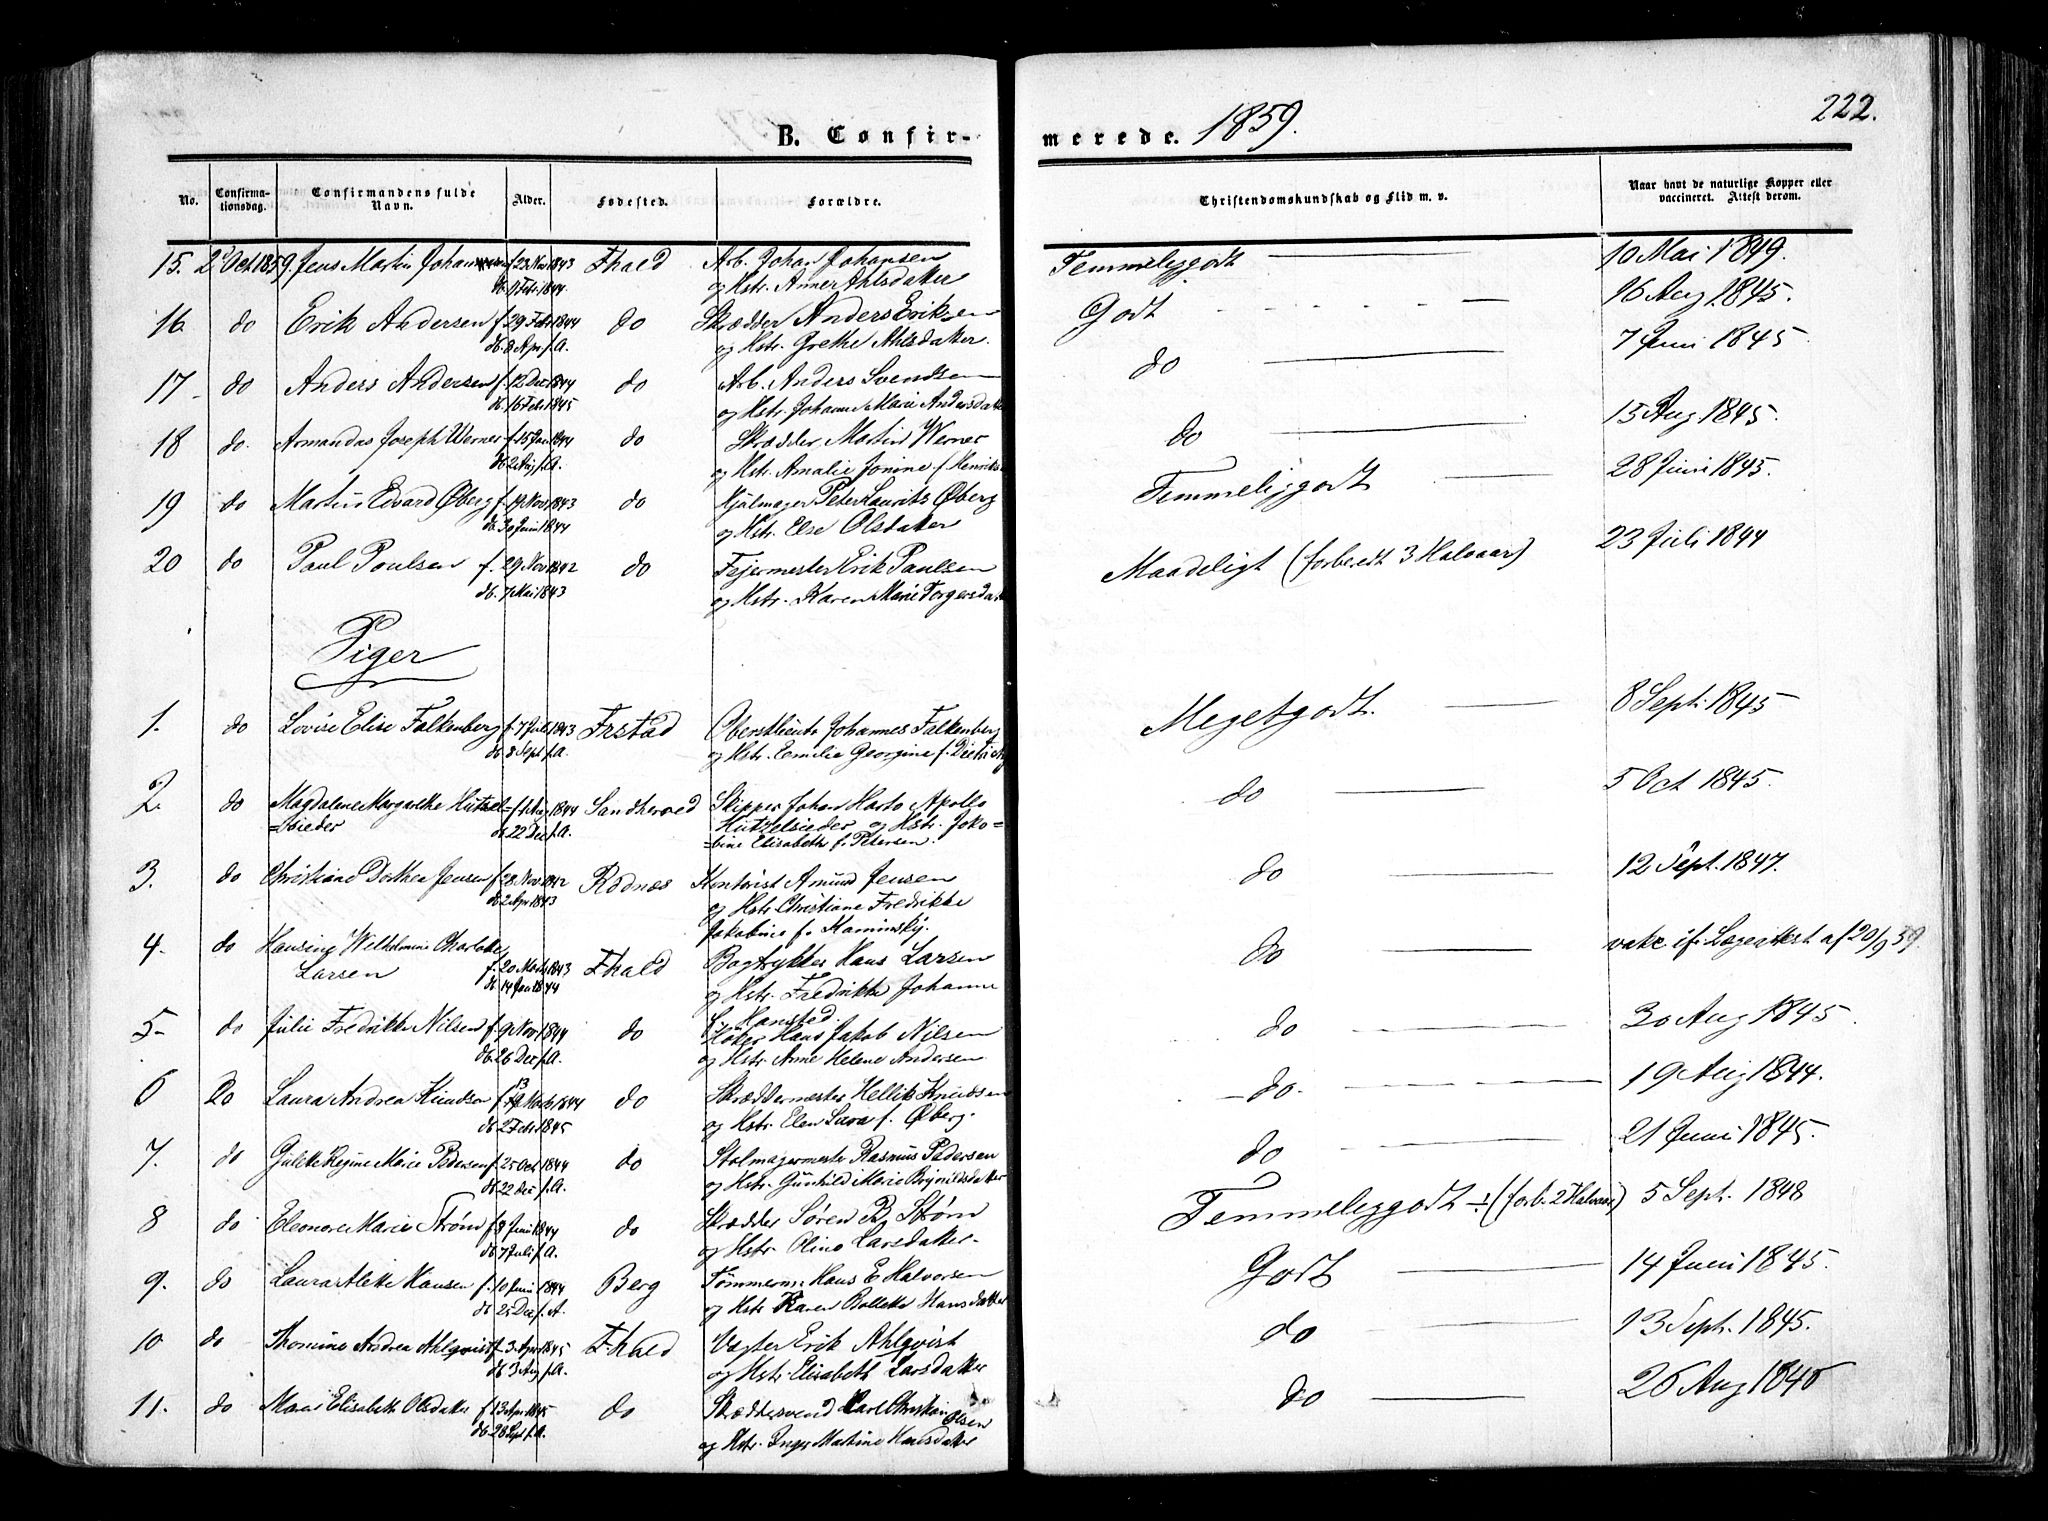 222.
B. Confirmerede. 1859.
No. Confirmationsdag. Confirmandens fulde Navn. Alder. Fødested. Forældre. Christendomskundskab og Flid m. v. Naar havt de naturlige Kopper eller vaccineret. Attest derom.
15. 2 Oct 1859. Jens Martin Johannesen f. 23 Nov 1843 Fhald Arb. Johan Johansen Temmeliggodt 10 Mai 1849.
db. 9 Febr. 1844 og Hstr. Anne Ahlsdatter
16 do Erik Andersen f. 29 Febr 1844 do Skrædder Anders Eriksen Godt 16 Aug 1845.
db. 8 Apr. f.A. og Hstr. Grethe Ahlsdatter.
17 do Anders Andersen f. 12 Dec 1844 do Arb. Anders Svendsen do 7 Juni 1845
db. 16 Febr. 1845 og Hstr. Johanne Marie Andersdatter
18 do. Armandas Joseph Werner f. 15 Jan 1844 do Skrædder Martin Werner do 15 Aug 1845.
db. 2 Aug f.A. og Hstr. Amalie Jonine f. Henriks
19 do Martin Edvard Øberg f. 19 Nov 1843 do Hjulmager Peter Laurits Øberg Temmeliggodt 28 Juni 1845.
db. 30 Juni 1844 og Hstr. Else Olsdatter
20 do Paul Poulsen f. 29 Nov 1842 do Fejermester Erik Paulsen Maadeligt (forberedt 3 Halvaar) 23 Juli 1844
db. 7 Mai 1843 og Hstr. Karen Marie Torgersdatter
Piger
1. do Lovise Elise Falkenberg f. 7 Juli 1843 Frstad Oberstlieutn Johannes Falkenberg Megetgodt. 8 Sept. 1845
db. 8 Sept f.A. og Hstr. Emilie Georgine f.
2. do Magdalene Margrethe Hutzel= f. 1 Aug 1844 Sandherred Skipper Johan Apollo do 5 Oct 1845.
=sieder db. 22 Dec f.A. Hutzelsieder og Hstr. Joko=
=bine Elisabeth f. Petersen.
3. do Christiane Dorthea Jensen f. 28 Nov 1842 Rødnæs Kontorist Amund Jensen do 12 Sept. 1847.
db. 2 Apr 1843 og Hstr. Christiane Fredrikke
Jakobine f. Kaminsky.
4. do Hansine Wilhelmine Charlotte do vakc if. Lægeattest af 20/9 59.
Larsen f. 20 Marts 1843 Fhald Bogtrykker Hans Larsen
db. 14 Jan 1844 og Hstr. Fredrikke Johanne
f. Hansted.
5 do Julie Fredrikke Nilsen f. 9 Nov 1844 do Høker Hans Jakob Nilsen do 30 Aug 1845
db. 26 Dec f.A. og Hstr. Anne Helene Andersen
6 do Laura Andrea Knudsen f. 13 Marts 1844 do Skræddermester Hellik Knudsen do 19 Aug 1844.
db. 2 Febr 1845 og Hstr. Elen Sara f. Øberg.
7. do Gulette Regine Marie Pedersen f. 25 Oct 1844 do Stolmagermester Rasmus Pedersen do 21 Juni 1845.
db. 22 Dec f.A. og Hstr. Gunhild Marie Brynildsdatter
8 do Eleonore Marie Strøm f. 8 Juni 1844 do Skrædder Søren B. Strøm Temmeliggodt (forb. 2 Halvaar) 5 Sept. 1848
db. 7 Juli f.A. og Hstr. Oline Larsdatter
9. do Laura Alette Hansen f. 10 Juni 1844 Berg Tømmerm. Hans E. Halvorsen Godt 14 Juni 1845.
db. 25 Dec f.A. og Hstr. Karen Bollette Hansdatter
10 do Thomine Andrea Ahlqvist f. 3 Apr 1845 Fhald Vægter Erik Ahlqvist do 13 Sept. 1845.
db. 3 Aug f.A. og Hstr. Elisabeth Larsdatter
11. do Marie Elisabeth Olsdatter f. 13 Apr 1845 do Skræddersvend Carl Christian Olsen do 26 Aug 1845
db. 28 Sept f.A. og Hstr. Inger Martine Hansdatter